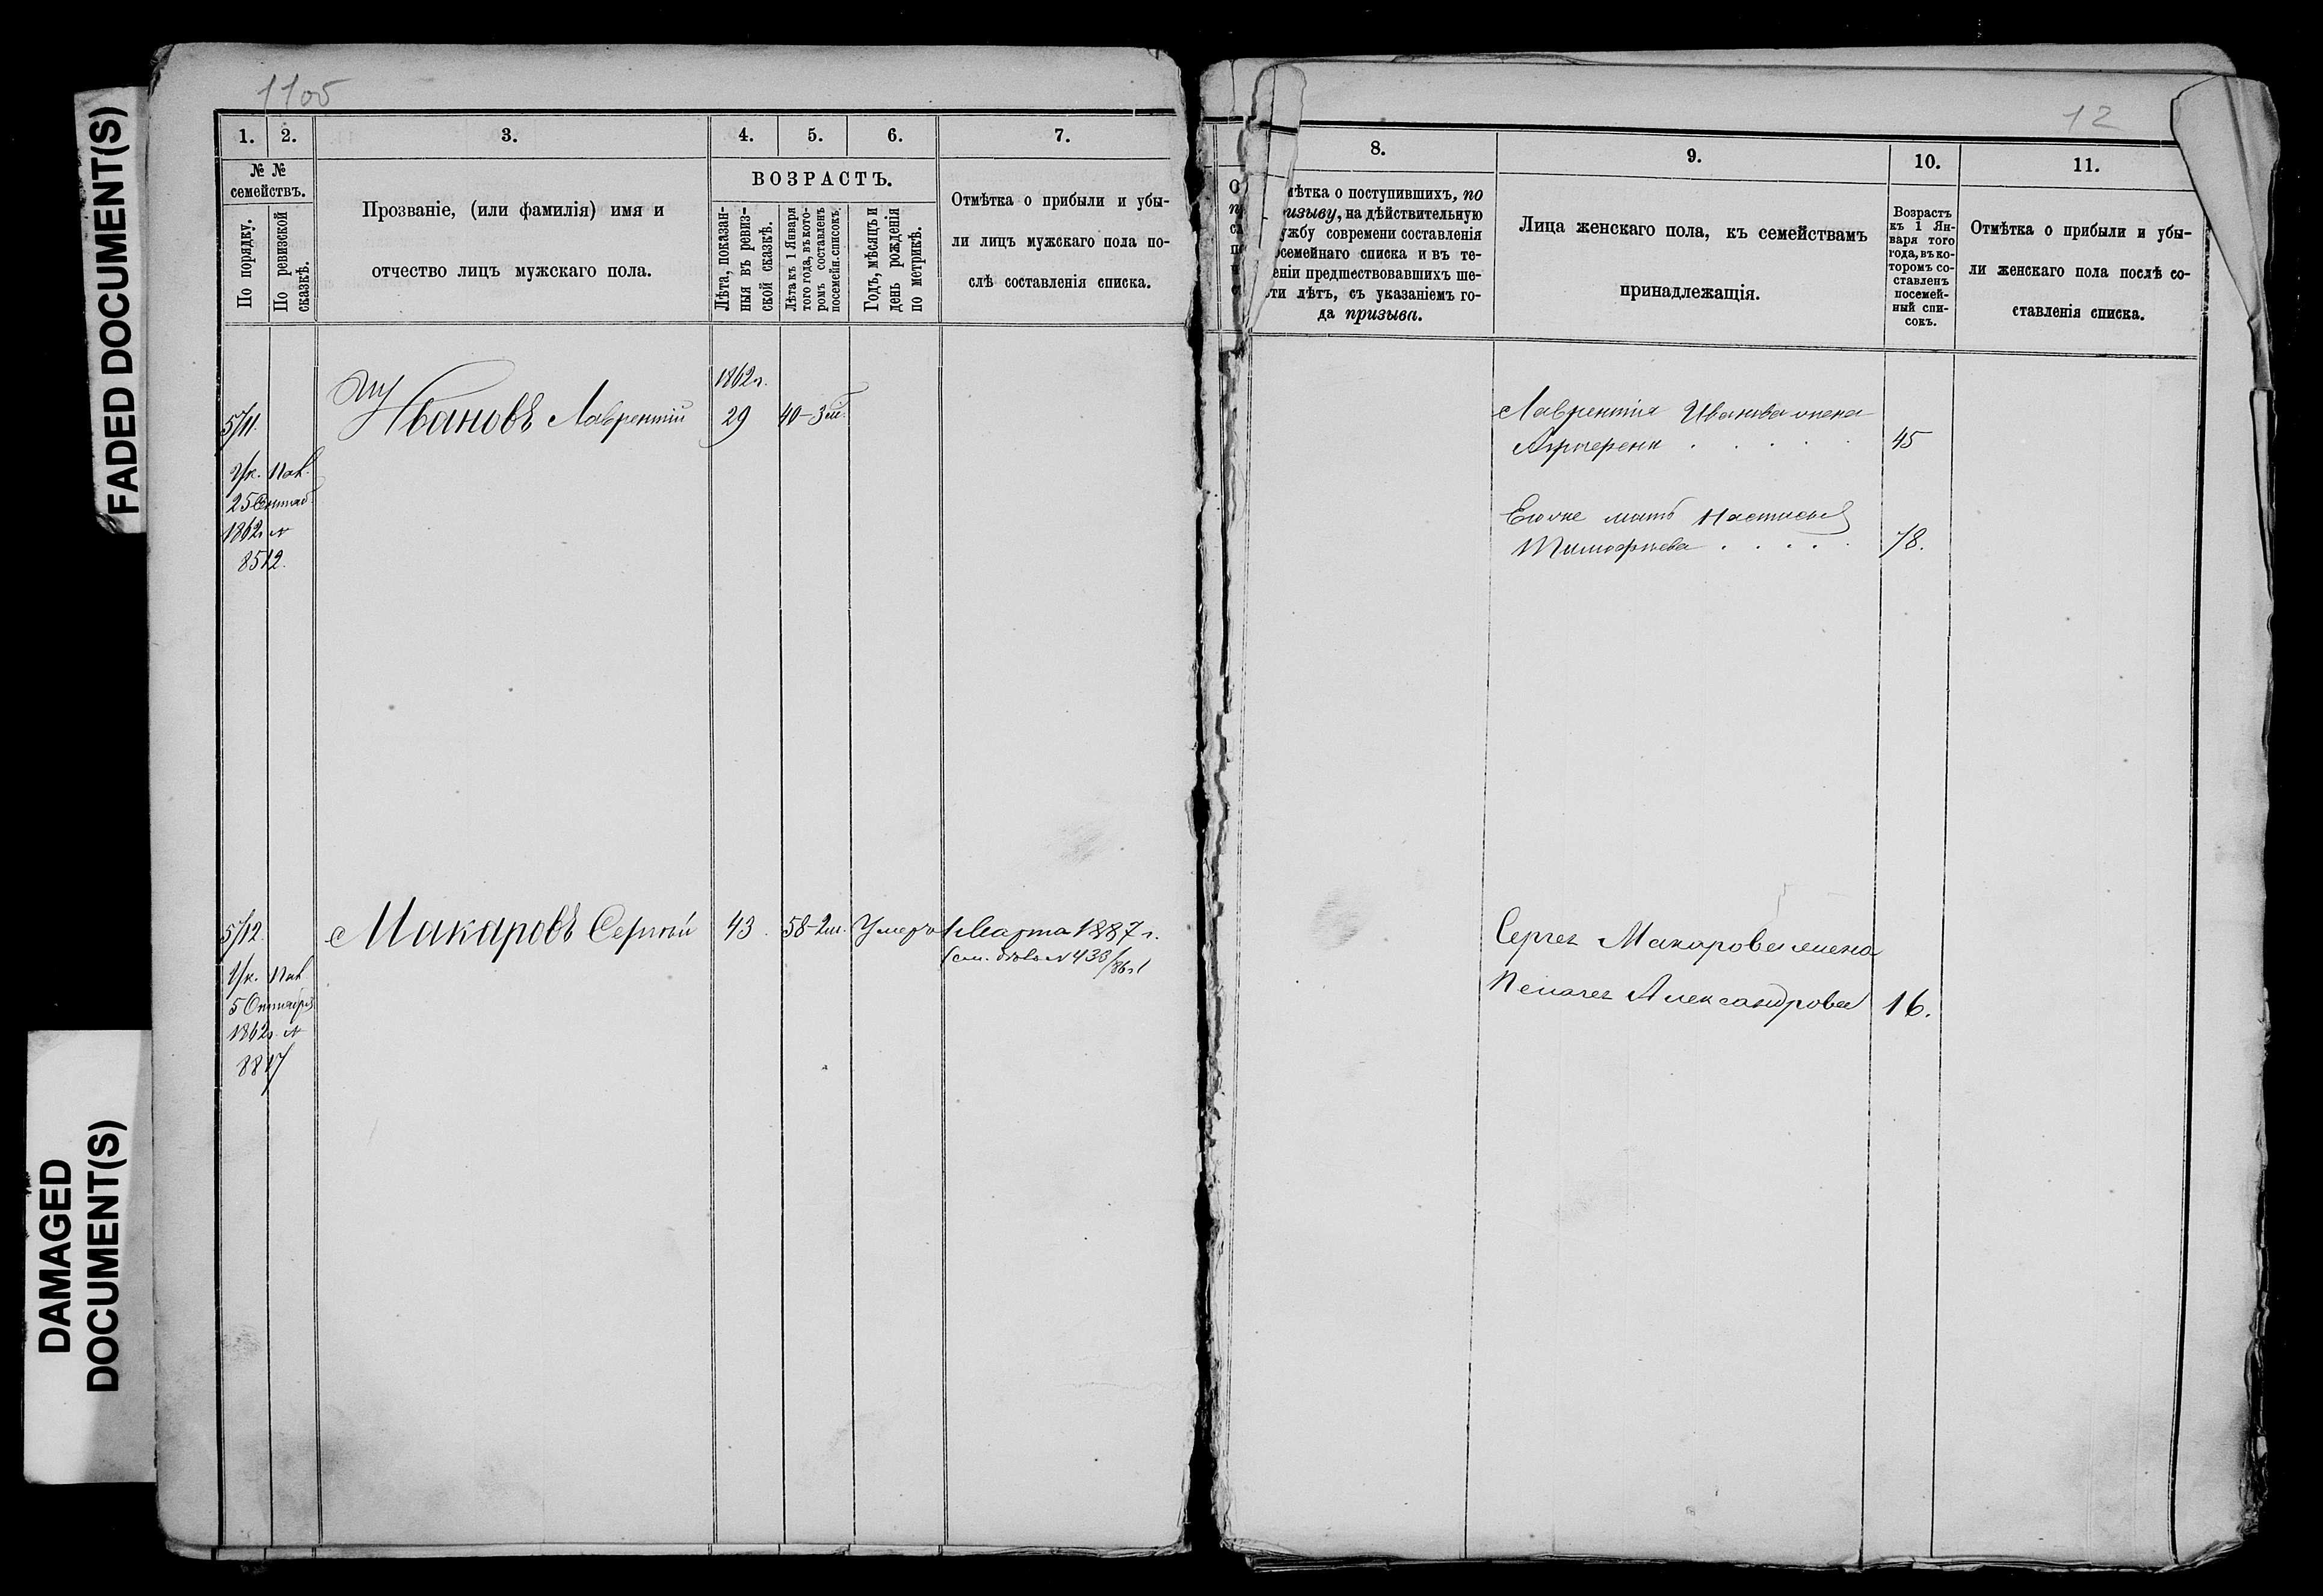 FADED DOCUMENT(S)
DAMAGED
DOCUMENT(S)
1105
1.
2.
3.
4.
5.
6.
7.
№ №
семействъ.
По порядку.
По ревизской
сказкѣ.
Прозваніе, (или фамилія) имя и
отчество лицъ мужскаго пола.
ВОЗРАСТЪ.
Лѣта, показан-
ныя въ ревиз-
ской сказкѣ.
Лѣта къ 1 Января
того года, въ кото-
ромъ составленъ
посемейн. списокъ.
Годъ, мѣсяцъ и
день рожденія
по метрикѣ.
Отмѣтка о прибыли и убы-
ли лицъ мужскаго пола по-
слѣ составленія списка.
1862 г.
5/11.
Ивановъ Лаврентій
29
40-3 м.
Ук. Пал.
25 Сентяб.
1862 г. №
8512.
5/12.
Макаровъ Сергѣй
43.
58-2 м.
Умеръ 1 Марта 1887 г.
(см. дѣло № 438/86 г.)
Ук. Пал.
5 Октября
1862 г. №
8817
12
8.
9.
10.
11.
мѣтка о поступившихъ, по
ризыву, на дѣйствительную
ужбу современи составленія
осемейнаго списка и въ те-
еніи предшествовавшихъ ше-
сти лѣтъ, съ указаніемъ го-
да призыва.
Лица женскаго пола, къ семействамъ
принадлежащія.
Возрастъ
къ 1 Ян-
варя того
года, въ ко-
торомъ со-
ставленъ
посемей-
ный спи-
сокъ.
Отмѣтка о прибыли и убы-
ли женскаго пола послѣ со-
ставленія списка.
Лаврентія Иванова жена
45
Его же мать Настасья
Тимофѣева . . . . . 78.
Сергея Макарова жена
Пелагея Александрова 16.